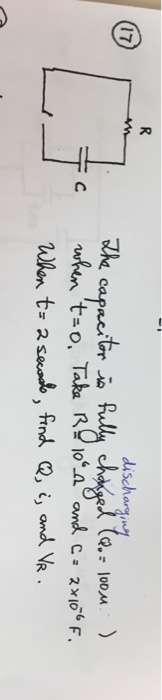 (17)
R
C
discharging
The capacitor is fully charged (Q₀ = 100μ )
when t=0. Take R = 10⁶ Ω and C = 2×10⁻⁶ F.
When t = 2 seconds, find Q, i, and VR.